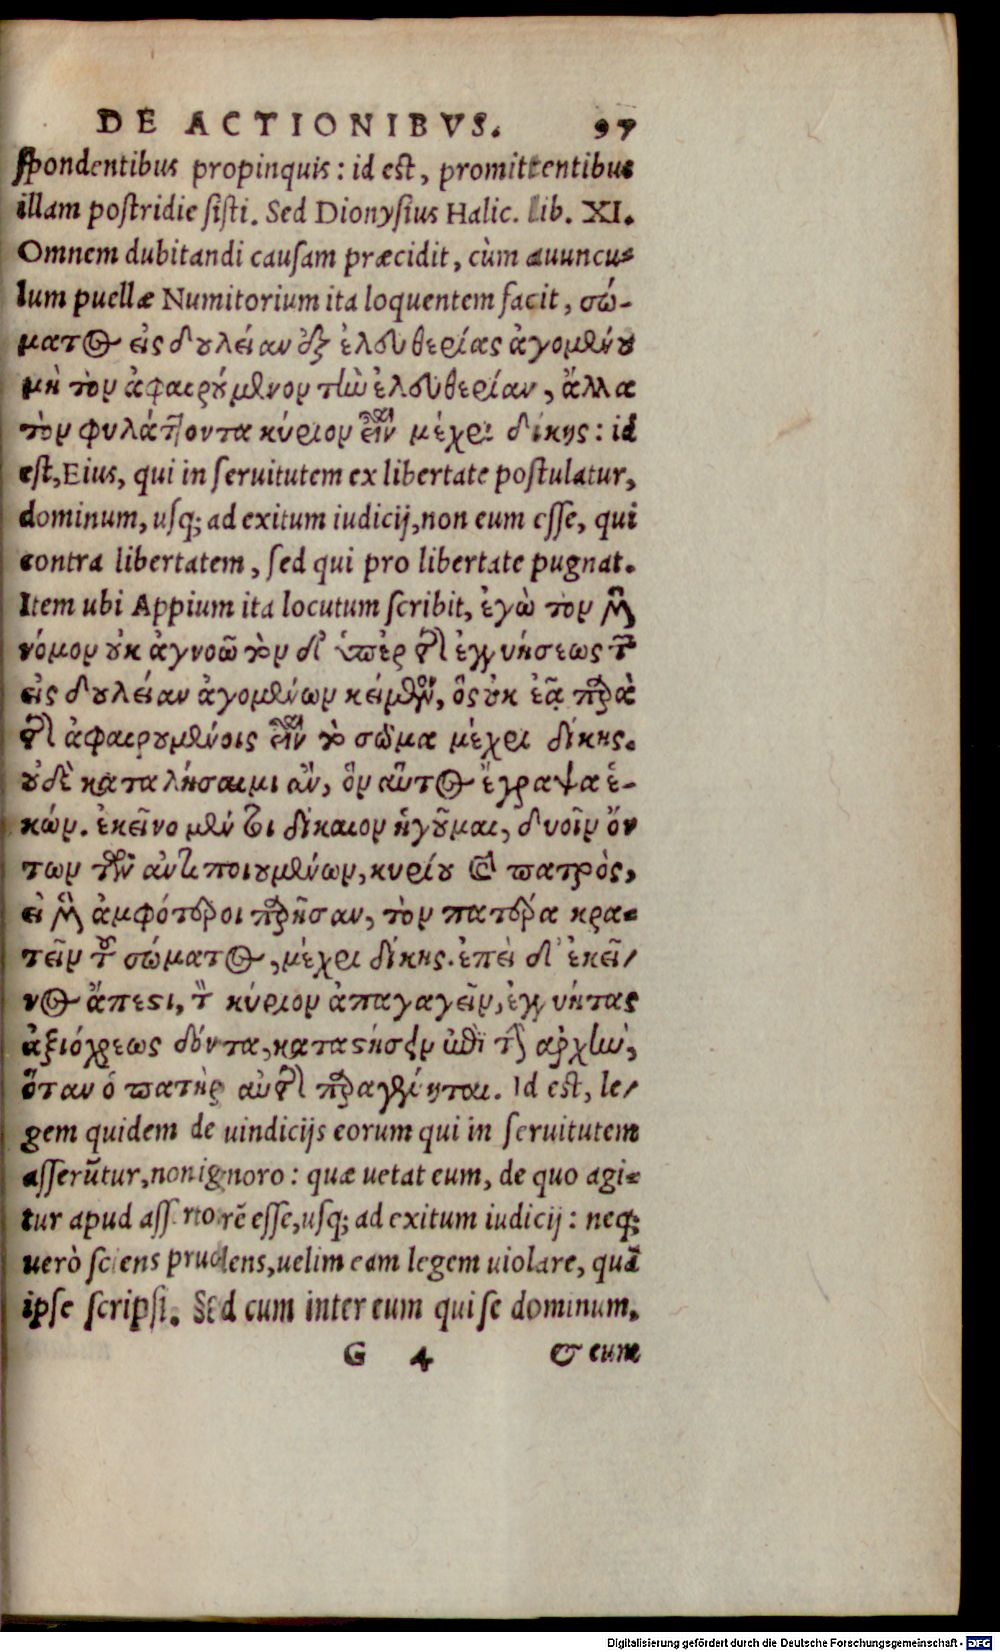 DE ACTIONIBVS. 97
spondentibus propinquis: id est, promittentibus
illam postridie sisti. Sed Dionysius Halic. Lib. XI.
Omnem dubitandi causam præcidit, cùm auuncu-
lum puellæ Numitorium ita loquentem facit, σώ-
ματος εἰς δουλείαν ἐξ ἐλευθερίας ἀγομένου
μὴ τὸν ἀφαιρούμενον τὴν ἐλευθερίαν, ἄλλα
τὸν φυλάττοντα κύριον εἶναι μέχρι δίκης: id
est, Eius, qui in seruitutem ex libertate postulatur,
dominum, usq; ad exitum iudicij, non eum esse, qui
contra libertatem, sed qui pro libertate pugnat.
Item ubi Appium ita locutum scribit, ἐγὼ τὸν μὲν
νόμον οὐκ ἀγνοῶ τὸν διὑπὲρ τῆς ἐγγυήσεως τῶν
εἰς δουλείαν ἀγομένων κείμενον, ὃς οὐκ ἐᾷ παρὰ
τοῖς ἀφαιρουμένοις εἶναι τὸ σῶμα μέχρι δίκης.
οὐδὲ καταλήσαιμι ἂν, ὃν αὐτὸς ἔγραψα ἑ-
κών. ἐκεῖνο μέντοι δίκαιον ἡγοῦμαι, δυοῖν ὄν
των τῶν ἀντιποιουμένων, κυρίου καὶ πατρὸς,
εἰ μὲν ἀμφότεροι παρῆσαν, τὸν πατέρα κρα-
τεῖν τοῦ σώματος, μέχρι δίκης. ἐπεὶ δ' ἐκεῖ/
νος ἄπεστι, τὸν κύριον ἀπαγαγεῖν, ἐγγυητὰς
ἀξιόχρεως δόντα, καταστήσειν ἐπὶ τὴν ἀρχὴν,
ὅταν ὁ πατὴρ αὐτῆς παραγένηται. Id est, le/
gem quidem de uindicijs eorum qui in seruitutem
asserũtur, non ignoro: quæ uetat eum, de quo agi-
tur apud assertorẽ esse, usq; ad exitum iudicij: neq;
uerò sciens prudens, uelim eam legem uiolare, quã
ipse scripsi. Sed cum inter eum qui se dominum.
G 4 & eum
Digitalisierung gefördert durch die Deutsche Forschungsgemeinschaft - DFG